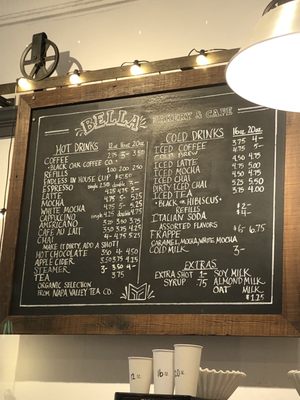 BELLA
BAKERY & CAFE
HOT DRINKS 12oz 16oz 20oz
COFFEE 2.75 3- 3.50
BLACK OAK COFFEE CO.
REFILLS 1.00 2.00 2.50
ENDLESS IN HOUSE CUP $5.50
ESPRESSO single 2.50 double
LATTE
MOCHA
WHITE MOCHA
CAPPUCCINO single 4.25 double 4.75
AMERICANO 3.50 3.75 4.25
CAFE AU LAIT 3.75 4.25
CHAI 4- 4.75 5.25
MAKE IT DIRTY, ADD A SHOT!
HOT CHOCOLATE 3.50 4- 4.50
APPLE CIDER 3.50 3.75 4.25
STEAMER 3- 3.50 4-
TEA 3.75
ORGANIC SELECTION
FROM NAPA VALLEY TEA CO.
COLD DRINKS 16oz 20oz
ICED COFFEE 3.75 4-
COLD BREW
ICED LATTE
ICED MOCHA
ICED CHAI
DIRTY ICED CHAI
ICED TEA 3.75 4.00
BLACK HIBISCUS
REFILLS $2-
ITALIAN SODA $4-
ASSORTED FLAVORS
FRAPPE 6.75
CARAMEL, MOCHA, WHITE MOCHA
COLD MILK 3-
EXTRAS
EXTRA SHOT 1- SOY MILK
SYRUP .75 ALMOND MILK
OAT MILK
$1.25
12oz 16oz 20oz